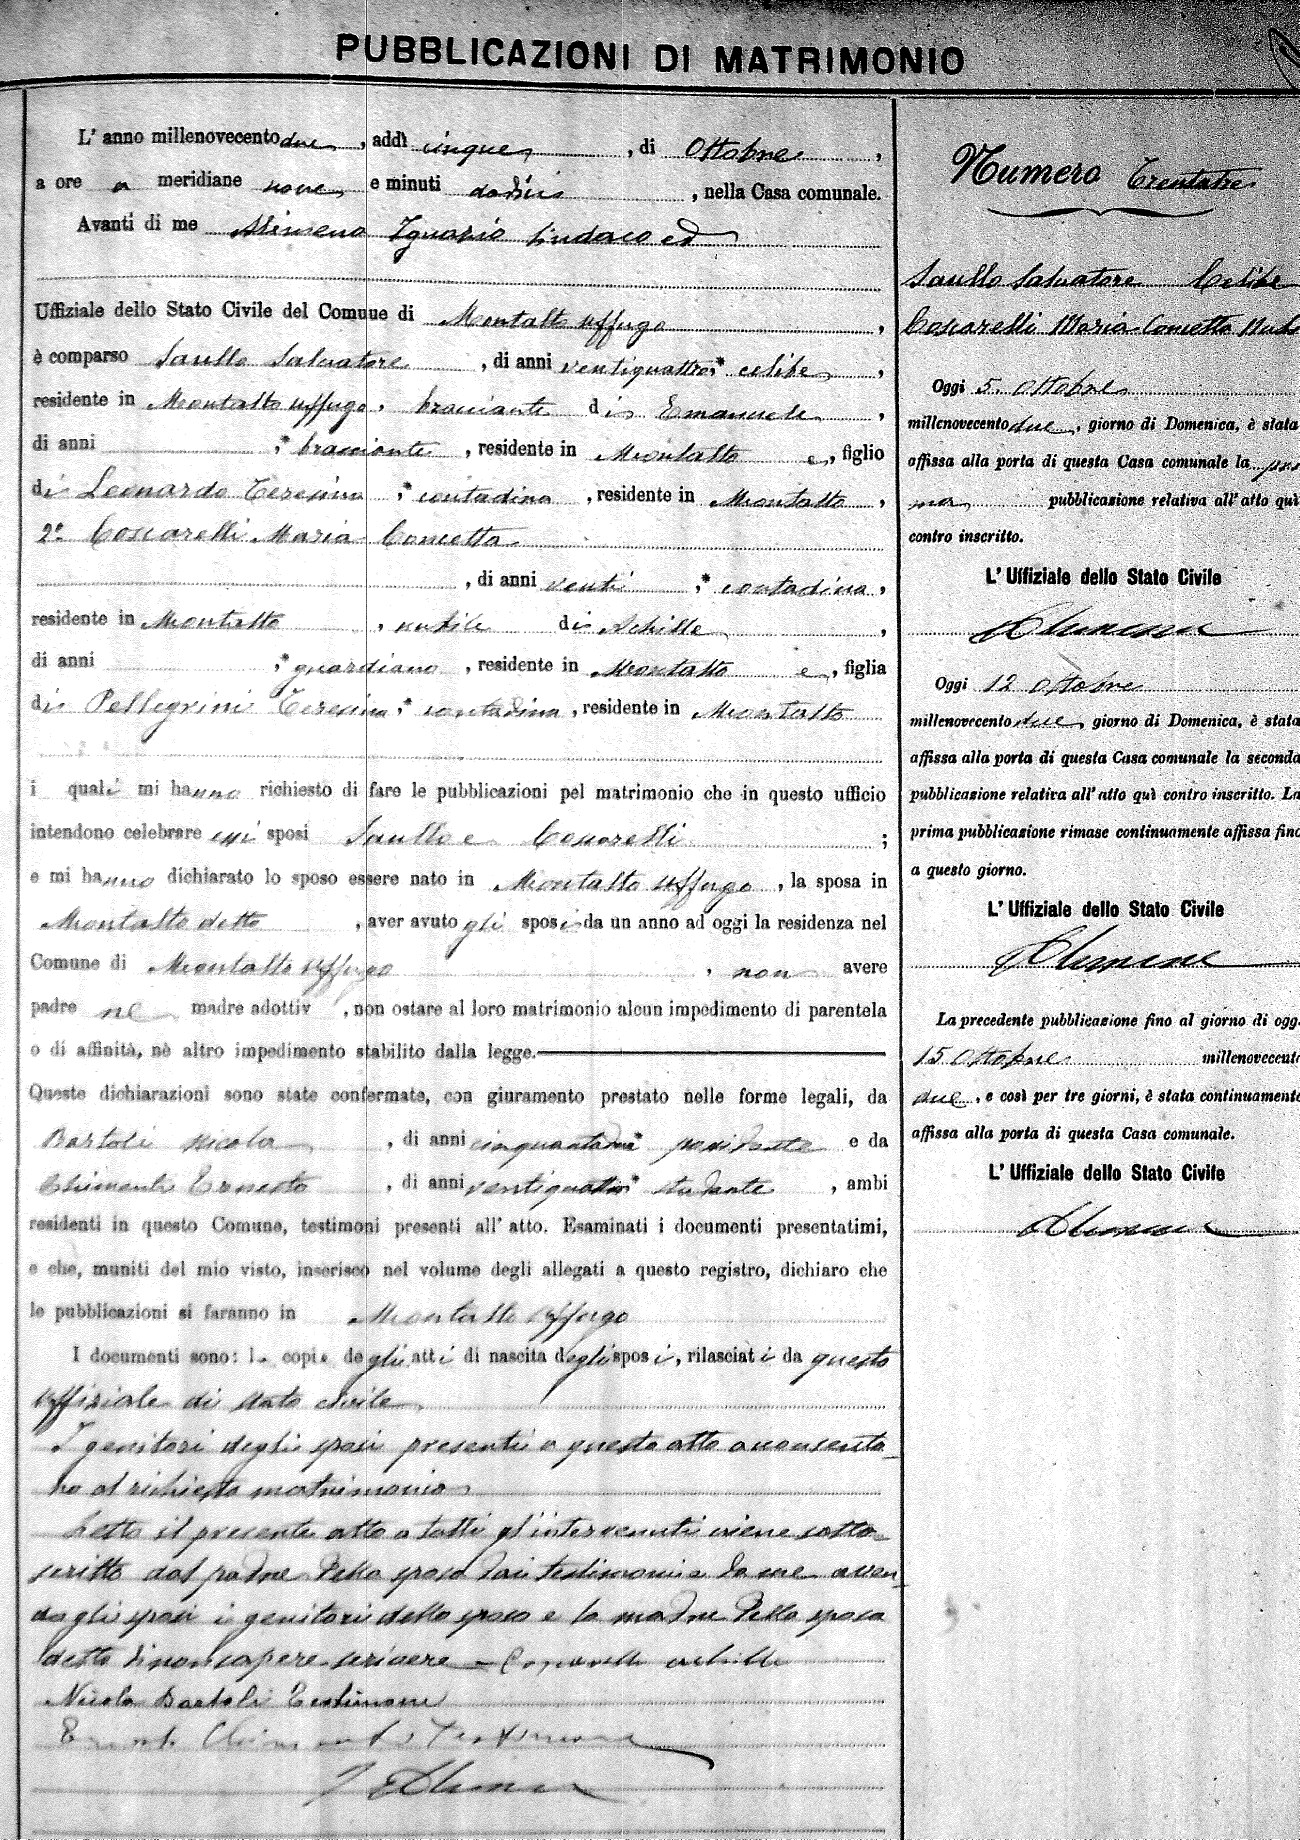 PUBBLICAZIONI DI MATRIMONIO
L' anno millenovecento due, addì cinque, di Ottobre,
a ore a meridiane nove e minuti dodici, nella Casa comunale.
Avanti di me Alimena Ignazio Sindaco ed
Uffiziale dello Stato Civile del Comune di Montalto Uffugo,
è comparso Saullo Salvatore, di anni ventiquattro,* celibe,
residente in Montalto Uffugo, bracciante di Emanuele,
di anni ,* bracciante, residente in Montalto e, figlio
di Leonardo Teresina,* contadina, residente in Montalto,
2º Coscarelli Maria Concetta
, di anni venti,* contadina,
residente in Montalto, nubile di Achille,
di anni ,* guardiano, residente in Montalto e, figlia
di Pellegrini Teresina,* contadina, residente in Montalto
i quali mi hanno richiesto di fare le pubblicazioni pel matrimonio che in questo ufficio
intendono celebrare essi sposi Saullo e Coscarelli;
e mi hanno dichiarato lo sposo essere nato in Montalto Uffugo, la sposa in
Montalto detto, aver avuto gli sposi da un anno ad oggi la residenza nel
Comune di Montalto Uffugo, non avere
padre nè madre adottiv , non ostare al loro matrimonio alcun impedimento di parentela
o di affinità, nè altro impedimento stabilito dalla legge.
Queste dichiarazioni sono state confermate, con giuramento prestato nelle forme legali, da
Bartoli Nicola, di anni cinquantadue* possidente e da
Chimenti Ernesto, di anni ventiquattro* studente, ambi
residenti in questo Comune, testimoni presenti all' atto. Esaminati i documenti presentatimi,
e che, muniti del mio visto, inserisco nel volume degli allegati a questo registro, dichiaro che
le pubblicazioni si faranno in Montalto Uffugo
I documenti sono: le copie degli atti di nascita degli sposi, rilasciati da questo
Uffiziale di stato civile.
I genitori degli sposi presenti a questo atto acconsento-
no al richiesto matrimonio
Letto il presente atto a tutti gl'intervenuti viene sotto-
scritto dal padre della sposa dai testimoni e da me aven-
do gli sposi i genitori dello sposo e la madre della sposa
detto di non sapere scrivere - Coscarelli Achille
Nicola Bartoli Testimone
Ernesto Chimenti Testimone
I Alimena
Numero Trentatre
Saullo Salvatore Celibe
Coscarelli Maria Concetta Nub
Oggi 5. Ottobre
millenovecento due, giorno di Domenica, è stata
affissa alla porta di questa Casa comunale la pri
ma pubblicazione relativa all' atto quì
contro inscritto.
L' Uffiziale dello Stato Civile
Alimena
Oggi 12 Ottobre
millenovecento due, giorno di Domenica, è stata
affissa alla porta di questa Casa comunale la seconda
pubblicazione relativa all' atto quì contro inscritto. La
prima pubblicazione rimase continuamente affissa fino
a questo giorno.
L' Uffiziale dello Stato Civile
Alimena
La precedente pubblicazione fino al giorno di oggi
15 Ottobre millenovecento
due, e così per tre giorni, è stata continuamente
affissa alla porta di questa Casa comunale.
L' Uffiziale dello Stato Civile
Alimena